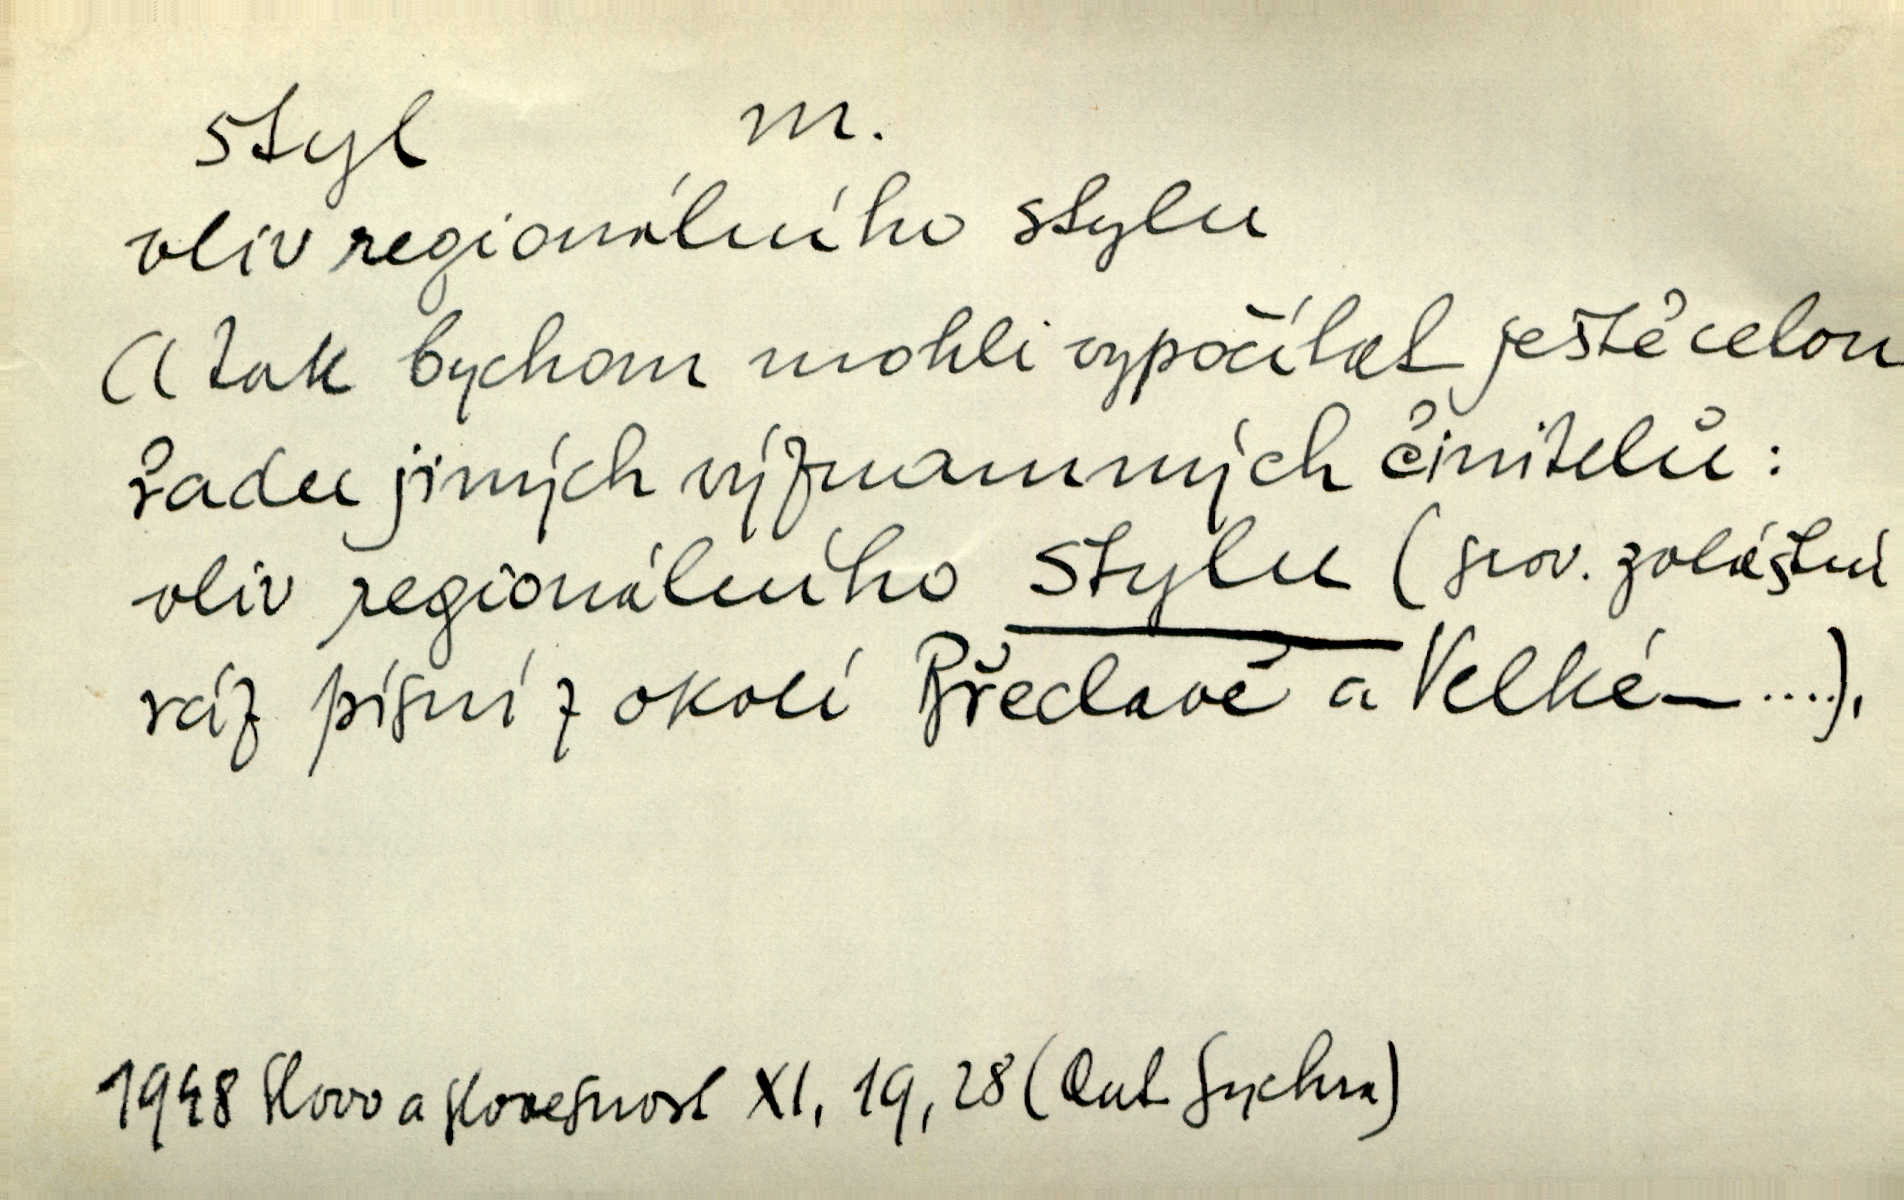 styl m.
vliv regionálního stylu
A tak bychom mohli vypočítat ještě celou
řadu jiných významných činitelů:
vliv regionálního stylu (srov. zvláštní
ráz písní z okolí Břeclavě a Velké – ....).
1948 Slovo a slovesnost XI, 19, 28 (Ant Sychra)